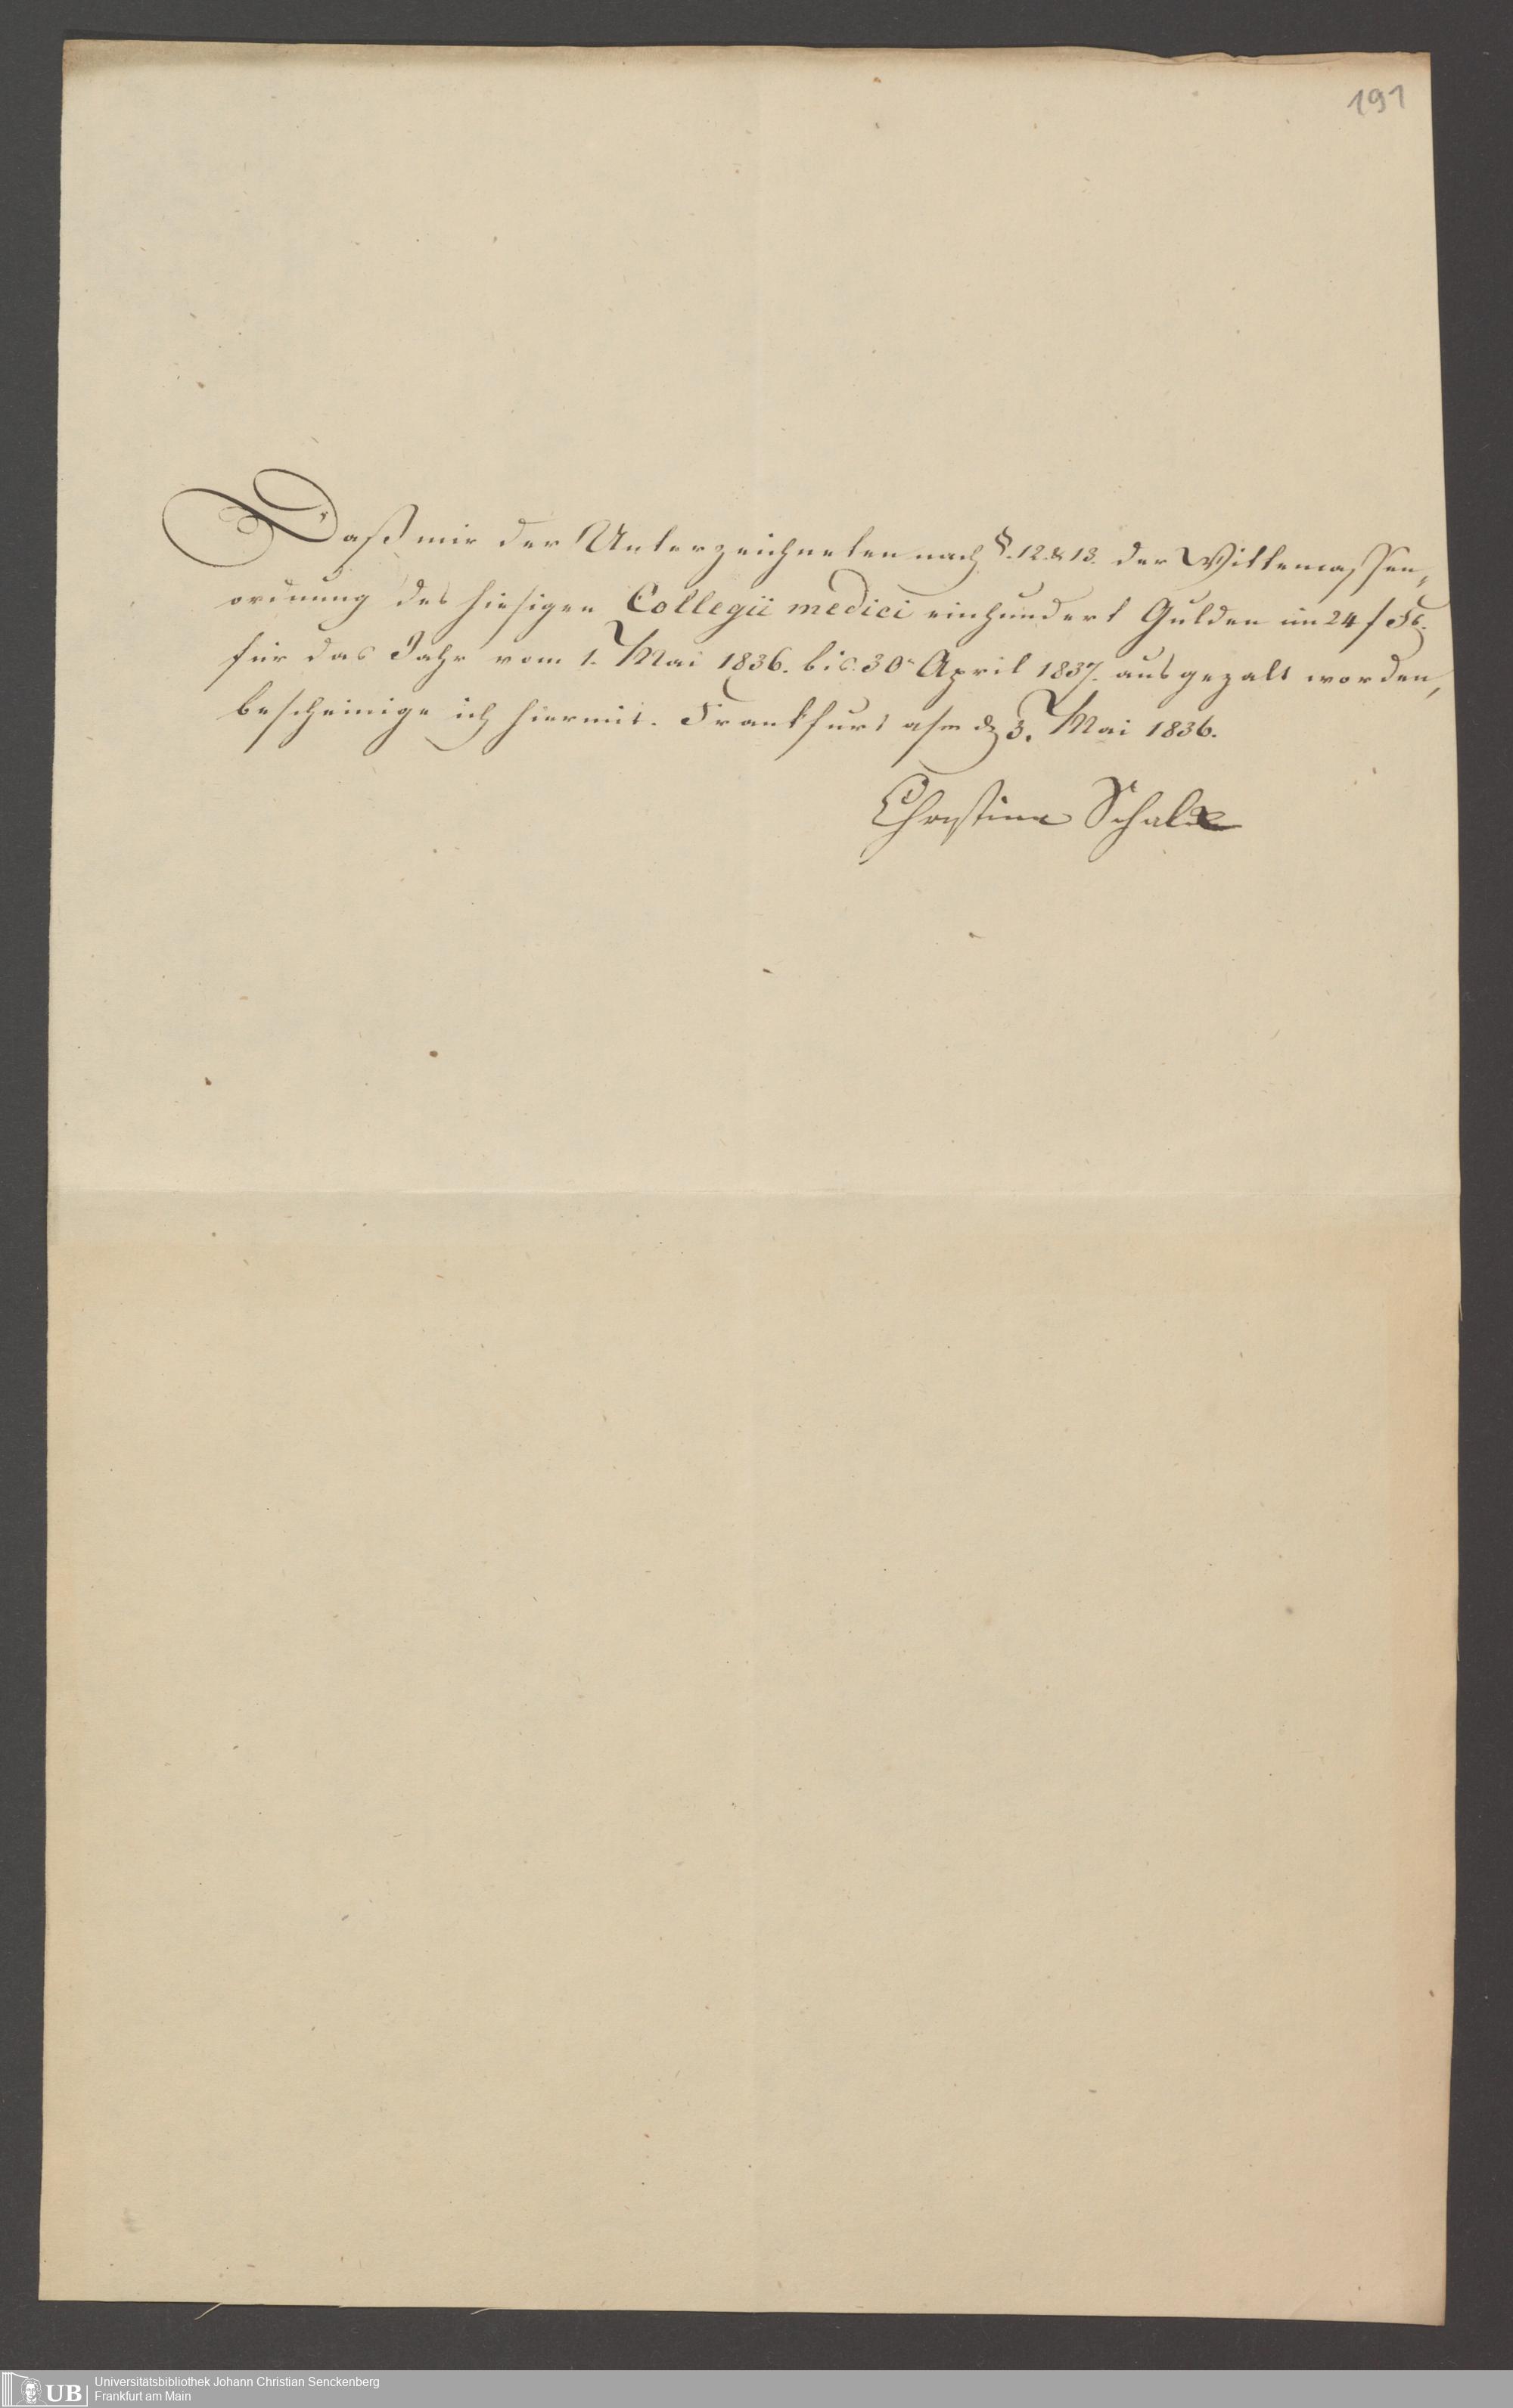 191
Daß mir der Unterzeichneten nach §. 12. & 13. der Wittwencassen„
ordnung des hiesigen Collegii medici einhundert Gulden im 24 f Fß.
für das Jahr vom 1. Mai 1836. bis 30n April 1837. ausgezalt worden,
bescheinige ich hiermit. Frankfurt a/m d 3. Mai 1836.
Christine Schalck
UB
Universitätsbibliothek Johann Christian Senckenberg
Frankfurt am Main